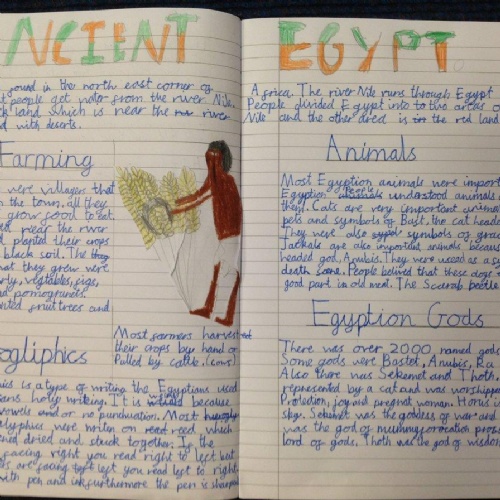 ANCIENT EGYPT
found in the north east corner of
people get water from the river Nile.
land which is near the river
with deserts.
Farming
were villagers that
in the town. all they
grow food to eat.
near the river
planted their crops
black soil. The
that they grew were
vegtables, figs,
pomogranits.
fruit trees and
Most farmers harvest
their crops by hand or
Pulled by cattle. (cows)
is a type of writing the Egyptians used
holy writing. It is because
vowels or no punuation. Most
were writen on reed which
dried and stuck together. If the
facing right you read right to left but
are facing left you read left to right.
with pen and ink furthermore the pen is
Africa. The river Nile runs through Egypt
People divided Egypt into to two areas
Nile and the other area is the red land
Animals
Most Egyption animals were import
Egyption People understood animals
them. Cats are very important
pets and symbols of Bast, the cat head
They were also symbols of grac
Jackals are also important animals becau
headed god, Anubis. They were usused as a
death. They belived that these dogs
good part in old meal. The Scarab beetle
Egyption Gods
There was over 2000 named gods
Some gods were Bastet, Anubis, Ra
Also there was Sekemet and Thoth
represented by a cat and was worshippe
Protection, joy and pregnat woman. Horus i
sky. Sekemet was the goddess of war and
was the god of mummyforcation
lord of gods. Thoth was the god of wisdom